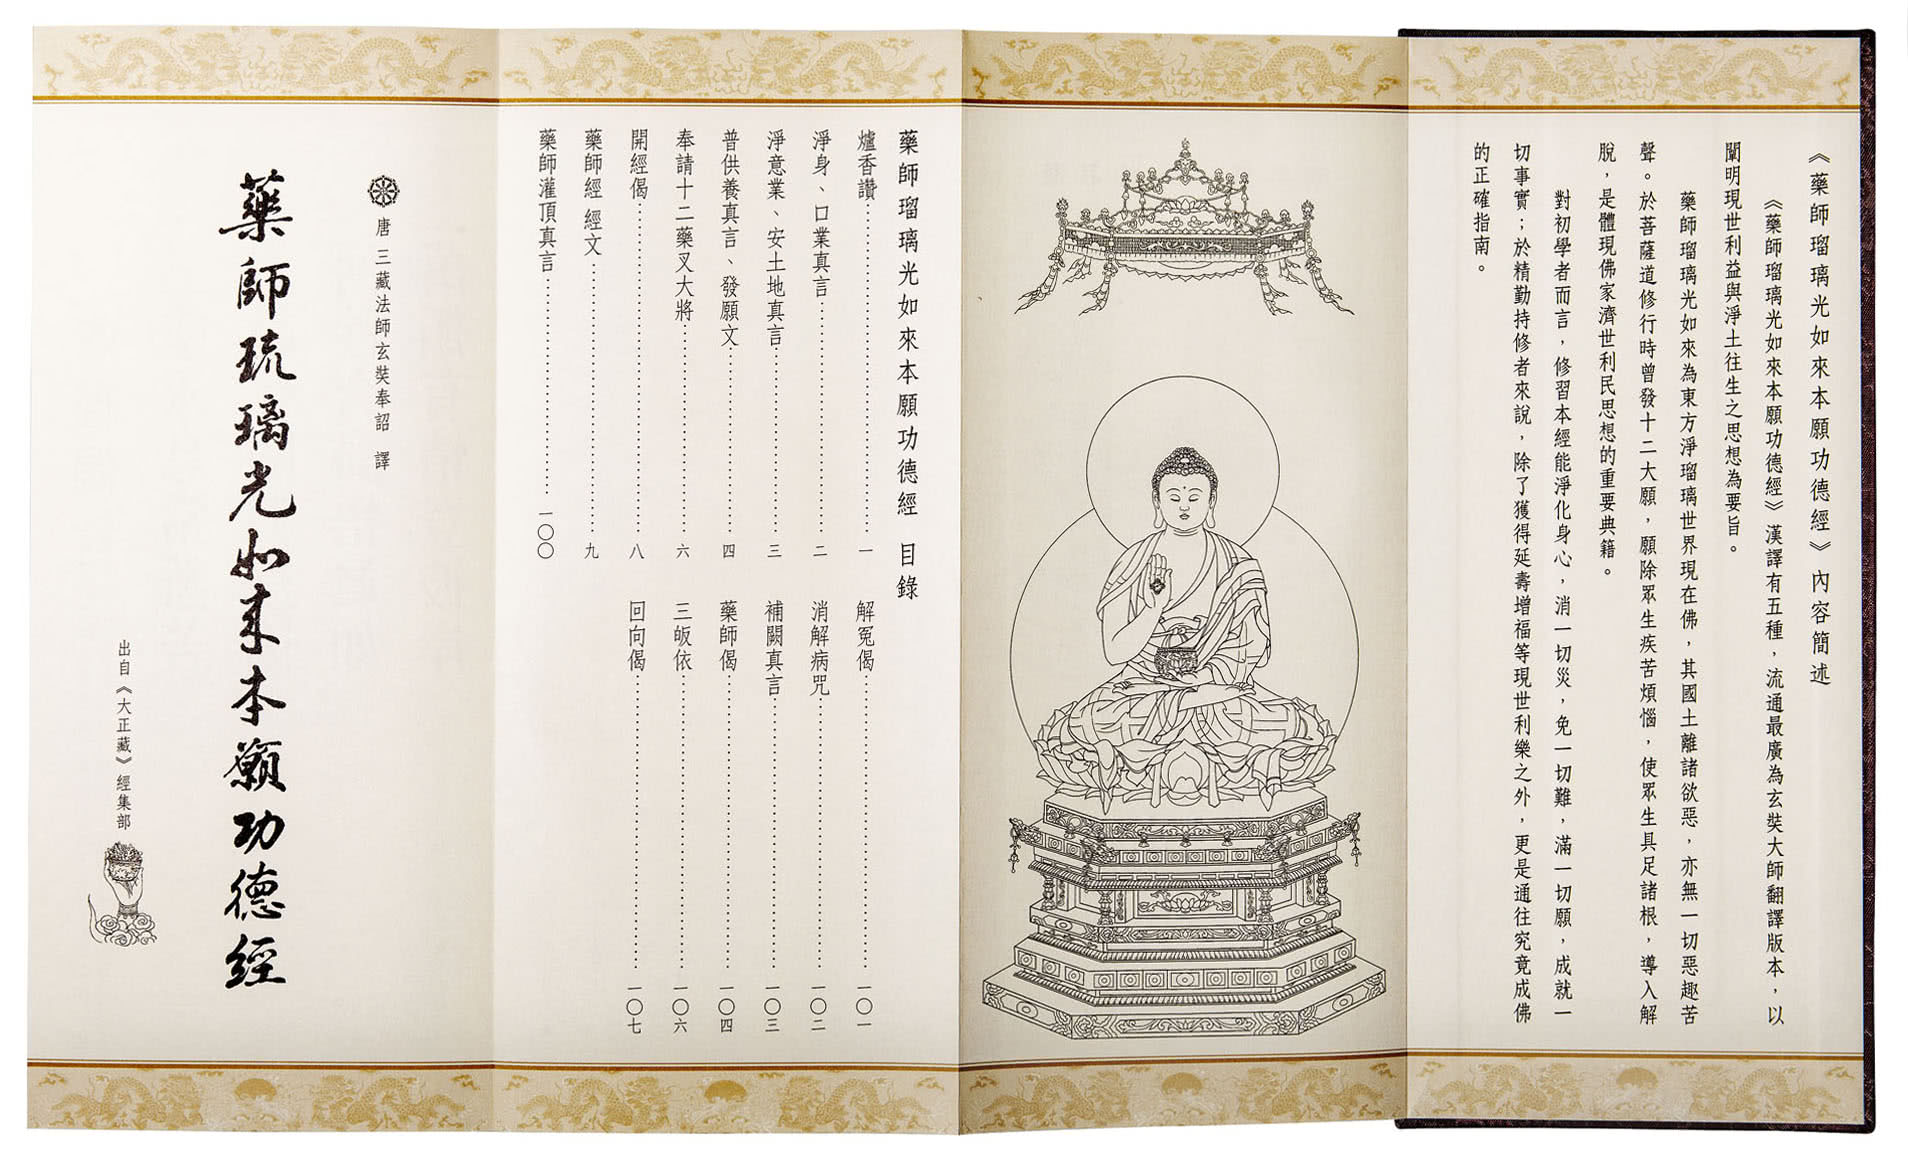 《藥師瑠璃光如來本願功德經》內容簡述
《藥師瑠璃光如來本願功德經》漢譯有五種，流通最廣為玄奘大師翻譯版本，以
闡明現世利益與淨土往生之思想為要旨。
藥師瑠璃光如來為東方淨瑠璃世界現在佛，其國土離諸欲惡，亦無一切惡趣苦
聲。於菩薩道修行時曾發十二大願，願除眾生疾苦煩惱，使眾生具足諸根，導入解
脫，是體現佛家濟世利民思想的重要典籍。
對初學者而言，修習本經能淨化身心，消一切災，免一切難，滿一切願，成就一
切事實；於精勤持修者來說，除了獲得延壽增福等現世利樂之外，更是通往究竟成佛
的正確指南。
藥師瑠璃光如來本願功德經 目錄
爐香讚⋯⋯⋯⋯⋯⋯一
淨身、口業真言⋯⋯⋯⋯⋯⋯二
淨意業、安土地真言⋯⋯⋯⋯⋯⋯三
普供養真言、發願文⋯⋯⋯⋯⋯⋯四
奉請十二藥叉大將⋯⋯⋯⋯⋯⋯六
開經偈⋯⋯⋯⋯⋯⋯八
藥師經 經文⋯⋯⋯⋯⋯⋯九
藥師灌頂真言⋯⋯⋯⋯⋯⋯一〇〇
解冤偈⋯⋯⋯⋯⋯⋯一〇一
消解病咒⋯⋯⋯⋯⋯⋯一〇二
補闕真言⋯⋯⋯⋯⋯⋯一〇三
藥師偈⋯⋯⋯⋯⋯⋯一〇四
三皈依⋯⋯⋯⋯⋯⋯一〇六
回向偈⋯⋯⋯⋯⋯⋯一〇七
唐 三藏法師玄奘奉詔 譯
藥師琉璃光如来本願功德經
出自《大正藏》經集部